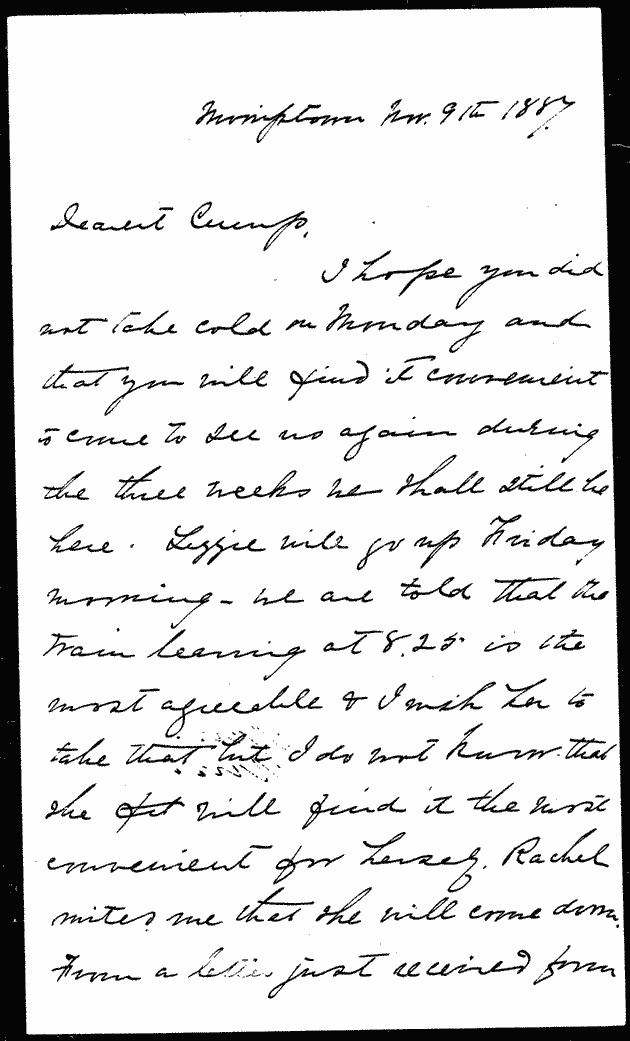 Nov. 9th 1887.
Dearest Crump,
I hope you did
not take cold on Monday and
that you will find it convenient
to come to see us again during
the three weeks we shall still be
here. Lizzie will go up Friday
morning - we are told that the
train leaving at 8.25 is the
most agreeable & I wish her to
take that but I do not know that
she will find it the most
convenient for herself. Rachel
writes me that she will come down.
From a letter just received from